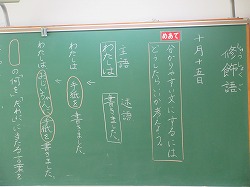 修飾語
しゅうしょくご
十月十五日
めあて
分かりやすい文にするには、どうしたらいいか考えよう。
主語 述語
わたしは 書きました。
わたしは 手紙を 書きました。
わたしは おじいちゃんに 手紙を 書きました。
の「何を」「だれに」にあたる言葉を